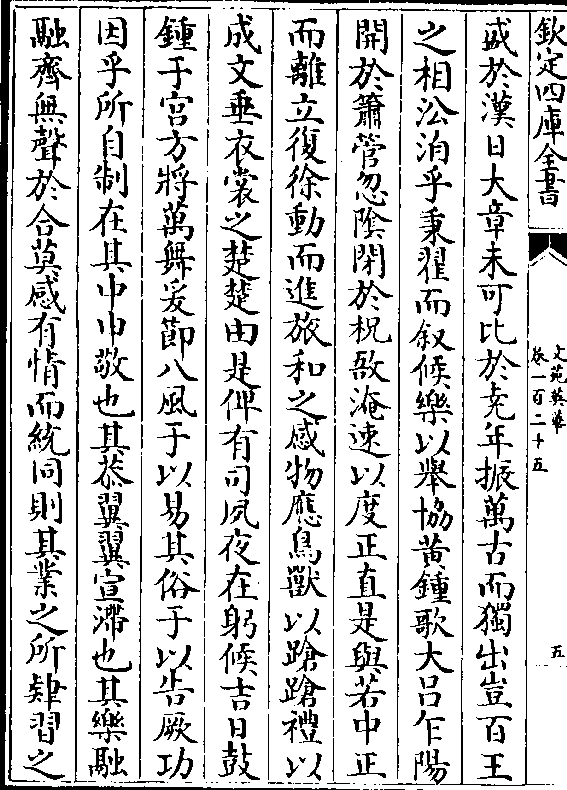 欽定四庫全書
文苑英華
卷一百二十五
五
盛於漢日大章未可比於堯年振萬古而獨出豈百王
之相沿洎乎秉翟而叙候樂以舉協黄鍾歌大吕乍陽
開於簫管忽陰閉於柷敔淹速以度正直是與若中正
而離立復徐動而進旅和之感物應鳥獸以蹌蹌禮以
成文垂衣裳之楚楚由是俾有司夙夜在躬候吉日鼓
鍾于宫方將萬舞爰節八風于以易其俗于以告厥功
因乎所自制在其中中敬也其恭翼翼宣滯也其樂融
融齊無聲於合莫感有情而統同則其業之所肄習之